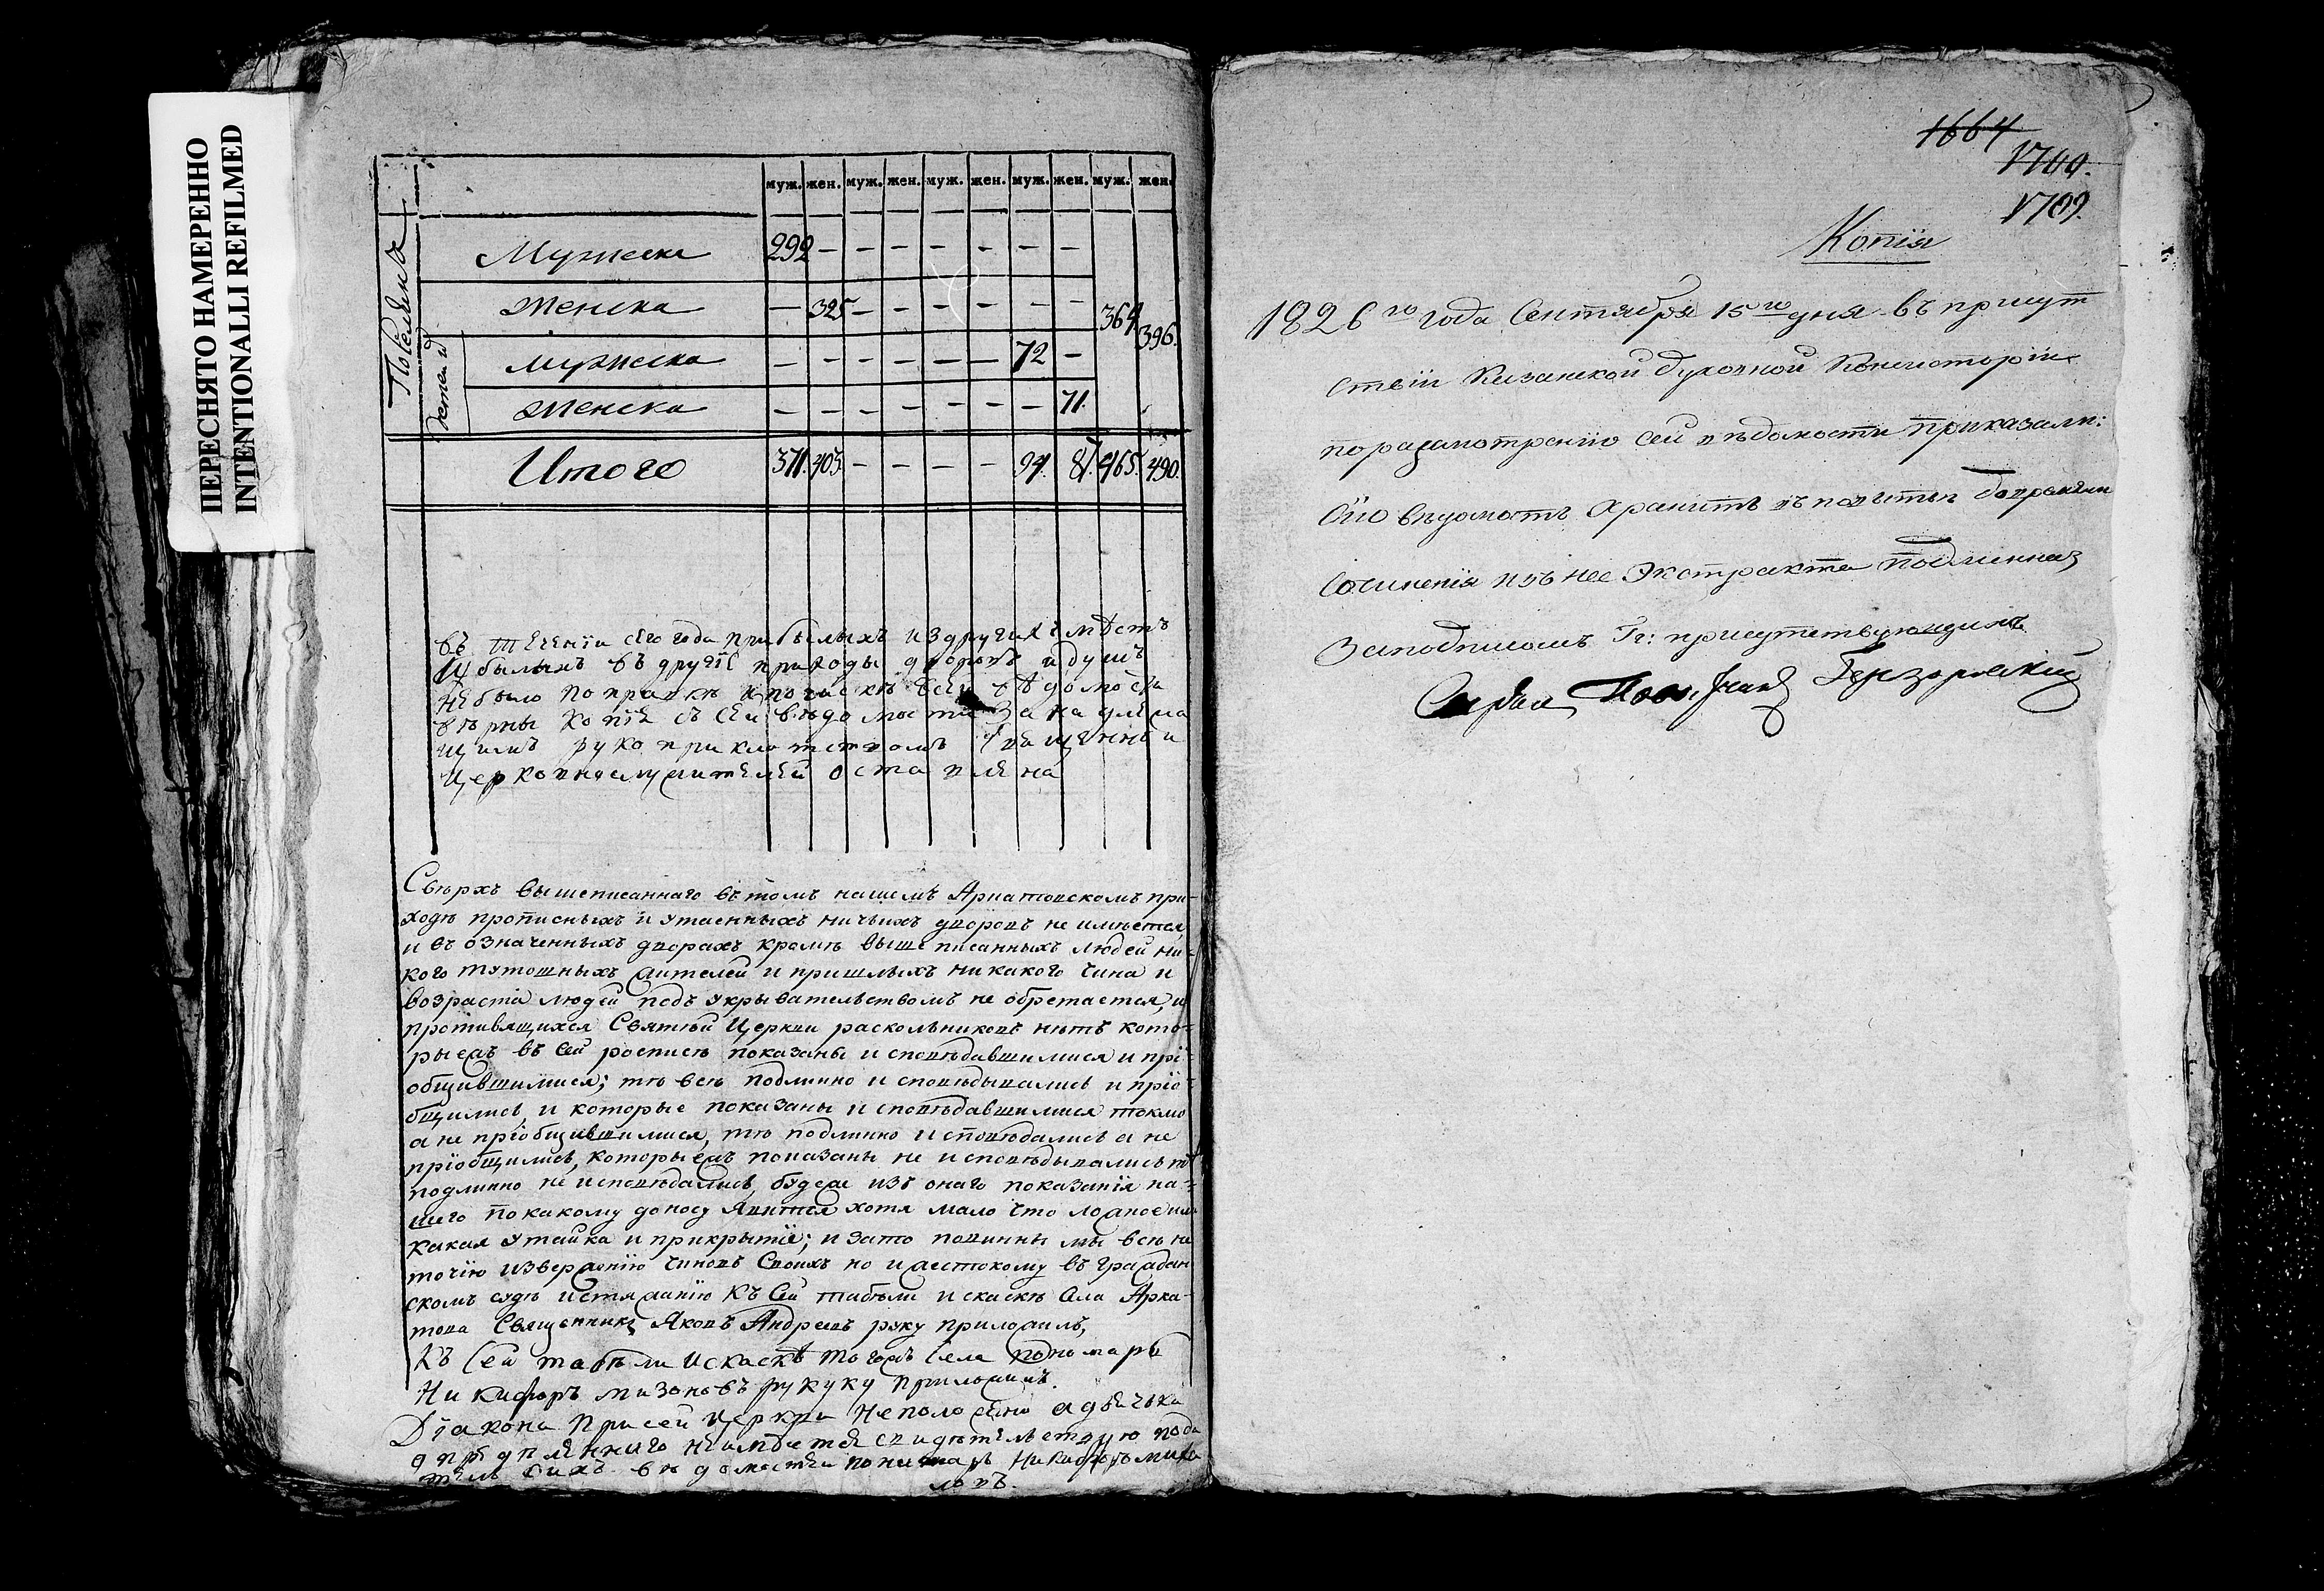 ПЕРЕСНЯТО НАМЕРЕННО
INTENTIONALLI REFILMED
муж. жен. муж. жен. муж. жен. муж. жен. муж. жен.
Мужеска 292 – – – – – – –
Женска – 325 – – – – – – 364 396.
детей
мужеска – – – – – – 72 –
женска – – – – – – – 71.
Итого 371. 403. – – – – 94. 87. 465. 490.
въ теченіи сего года прибылыхъ из другихъ мѣстъ
и убылыхъ въ другіе приходы дворовъ и душъ
небыло поправкѣ и почискѣ всей вѣдомости
вѣрны копія съ сей вѣдомости за надлежа
щимъ рукоприкладствомъ священно и
церковнослужителей оставлена
Сверхъ вышеписаннаго въ томъ нашемъ Аркатовскомъ при-
ходѣ прописныхъ и утаенныхъ ничьихъ дворовъ не имѣется,
и въ означенныхъ дворахъ кромѣ вышеписанныхъ людей ни-
кого тутошныхъ жителей и пришлыхъ никакого чина и
возраста людей подъ укрывательствомъ не обретается, и
противящихся Святѣй Церкви раскольниковъ нѣтъ кото-
рыежъ въ сей росписѣ показаны исповѣдавшимися и прі-
общившимися; тѣ всѣ подлинно исповѣдывались и прі-
общились, и которые показаны исповѣдавшимися токмо
а не пріобщившимися, тѣ подлинно исповѣдались а не
пріобщились, которыежъ показаны не исповѣдывались тѣ
подлинно не исповѣдались, будеже изъ онаго показанія на-
шего по какому доносу явится хотя мало что ложное или
какая утайка и прикрытіе; и зато повинны мы всѣ не
точію изверженію чиновъ своихъ но и жестокому въ граждан
скомъ судѣ истязанію Къ сей табели и скаскѣ села Арка-
това Священникъ Яковъ Андреевъ руку приложилъ,
Къ сей табѣли искаскѣ тогожъ села пономарь
Никифоръ рукуку приложилъ.
Діакона при сей церкви неположено а дьячка
опредѣленнаго неимѣется свидѣтельствую пода
тель сихъ вѣдомостей пономарь Никифоръ
1664
1709.
Копія
1826го года Сентября 15го дня въ присут
ствіи Казанской Духовной Консисторіи
поразсмотренію сей вѣдомости приказали:
Сію вѣдомость хранить въ повытьи
сочиненія изъ нее Экстракта подлинная
Заподписомъ Гг: присутствующихъ